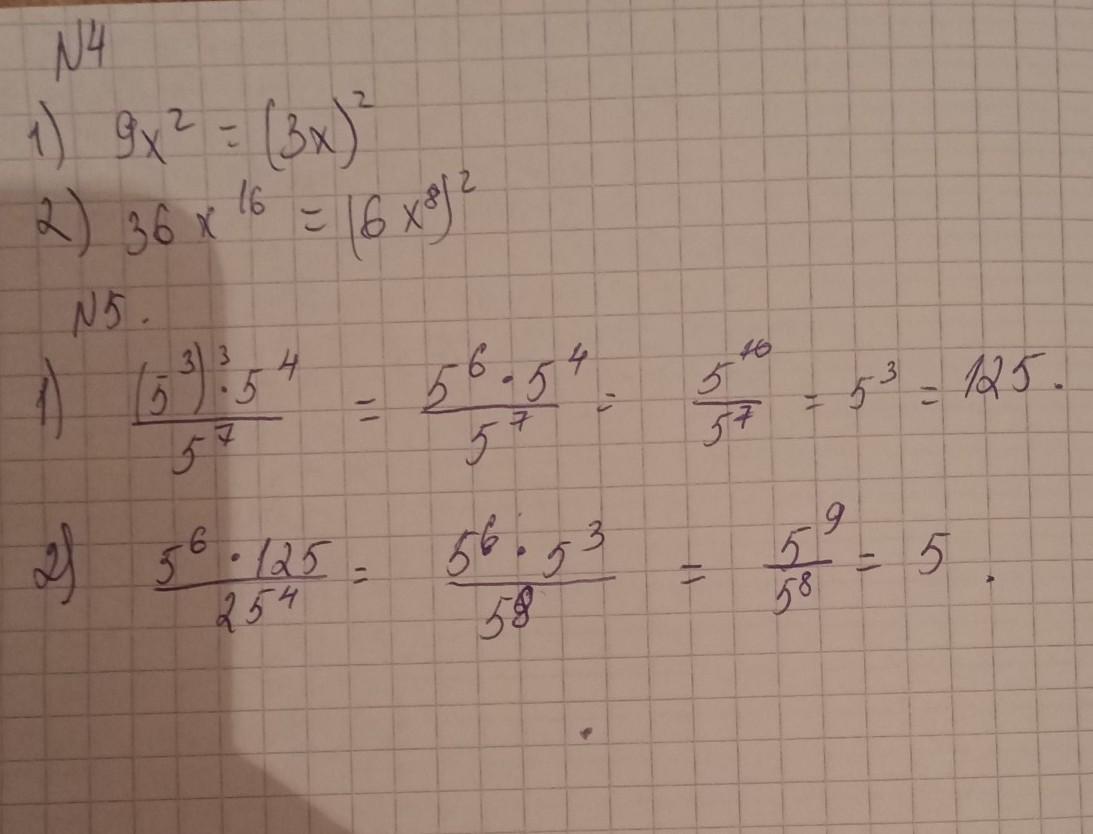 N4
1) 9x² = (3x)²
2) 36x¹⁶ = (6x⁸)²
N5.
1) (5³)³·5⁴ / 5⁷ = 5⁶·5⁴ / 5⁷ = 5¹⁰ / 5⁷ = 5³ = 125.
2) 5⁶·125 / 25⁴ = 5⁶·5³ / 5⁸ = 5⁹ / 5⁸ = 5.